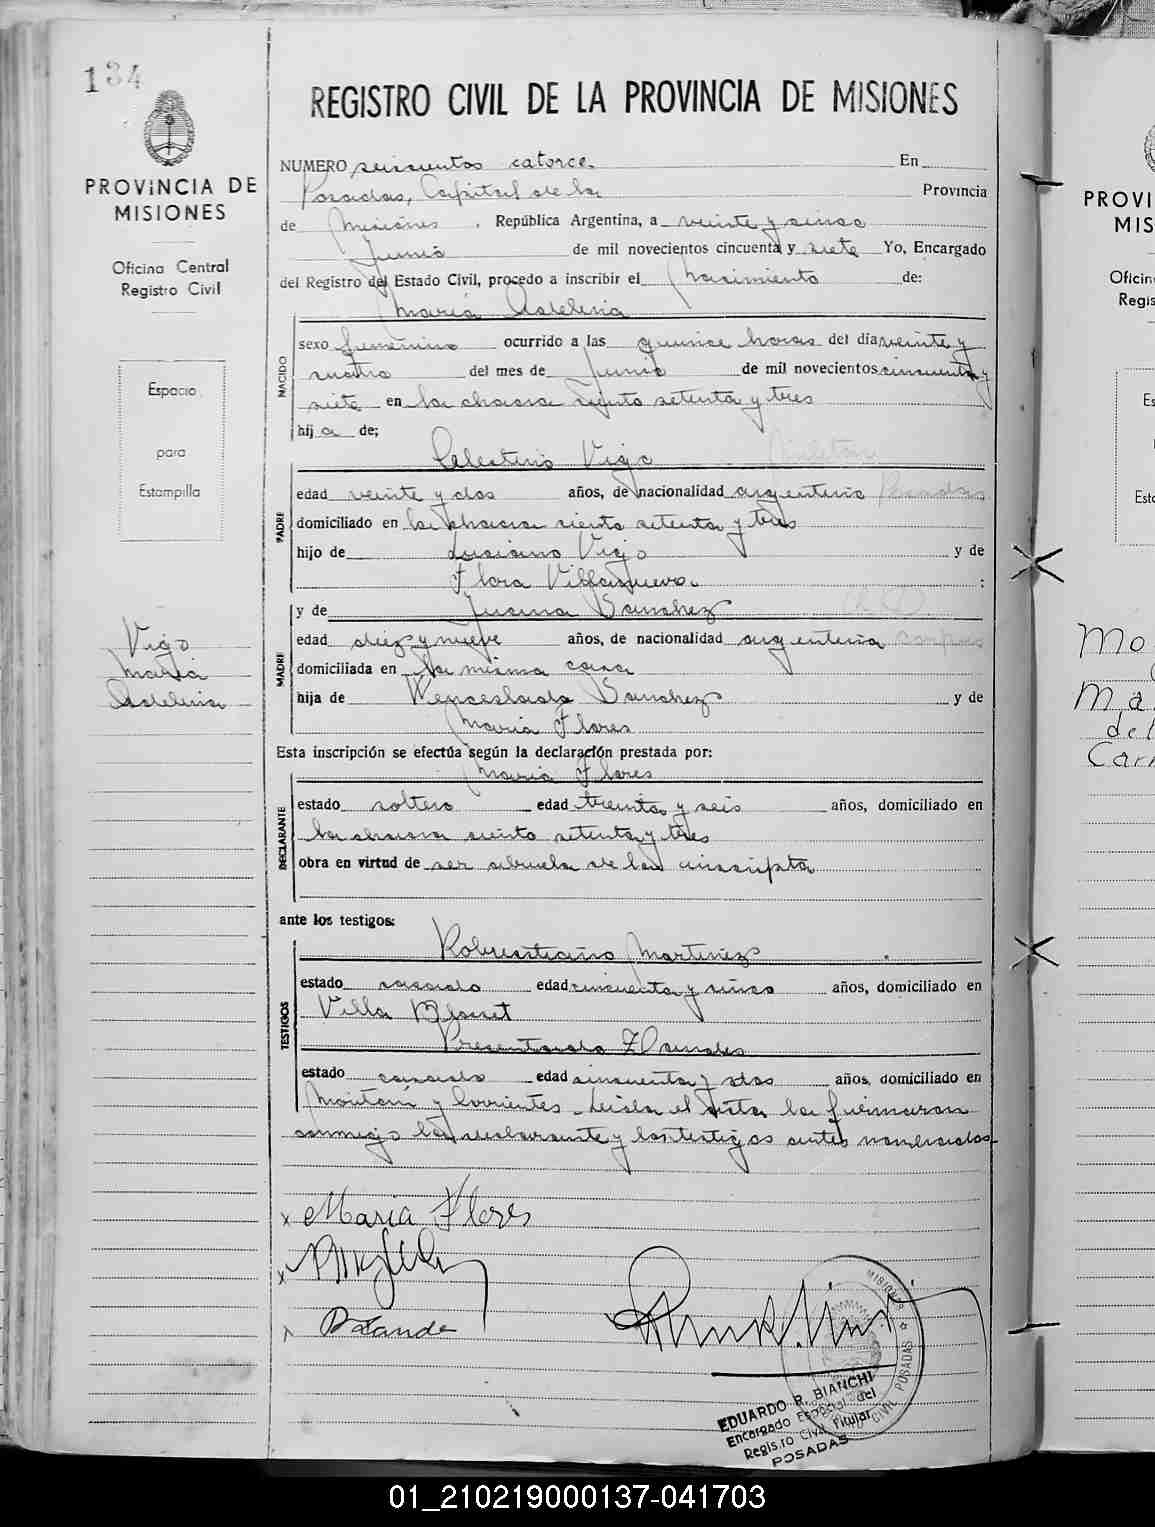 134
PROVINCIA DE
MISIONES
Oficina Central
Registro Civil
Espacio
para
Estampilla
Vigo
Maria
Adelina
REGISTRO CIVIL DE LA PROVINCIA DE MISIONES
NUMERO seiscientos catorce. En
Posadas, Capital de la Provincia
de Misiones, República Argentina, a veinte y cinco
Junio de mil novecientos cincuenta y siete Yo, Encargado
del Registro del Estado Civil, procedo a inscribir el Nacimiento de:
Maria Adelina
NACIDO
sexo femenino ocurrido a las quince horas del dia veinte y
cuatro del mes de Junio de mil novecientos cincuenta y
siete en la chacra ciento setenta y tres
hija de;
Celestino Vigo
PADRE
edad veinte y dos años, de nacionalidad argentino Posadas
domiciliado en la chacra ciento setenta y tres
hijo de Luciano Vigo y de
Flora Villanueva. :
y de Juana Sanchez
MADRE
edad diez y nueve años, de nacionalidad argentina Corpus
domiciliada en la misma casa
hija de Wenceslada Sanchez y de
Maria Flores
Esta inscripción se efectúa según la declaración prestada por:
Maria Flores
DECLARANTE
estado soltera edad treinta y seis años, domiciliado en
la chacra ciento setenta y tres
obra en virtud de ser abuela de la inscripta
ante los testigos:
Martinez
TESTIGOS
estado casado edad cincuenta y cinco años, domiciliado en
Villa Blosset
Presentado
estado casado edad cincuenta y dos años, domiciliado en
Montani y Corrientes. Leida el acta la firmaron
conmigo la declarante y los testigos antes nombrados
x Maria Flores
x
EDUARDO R. BIANCHI
Encargado Especial del
Registro Civil Titular
POSADAS
MISIONES
POSADAS
CIVIL
PROVI
MIS
Oficin
Regis
Es
Esta
Mo
Ma
del
Carm
01_210219000137-041703